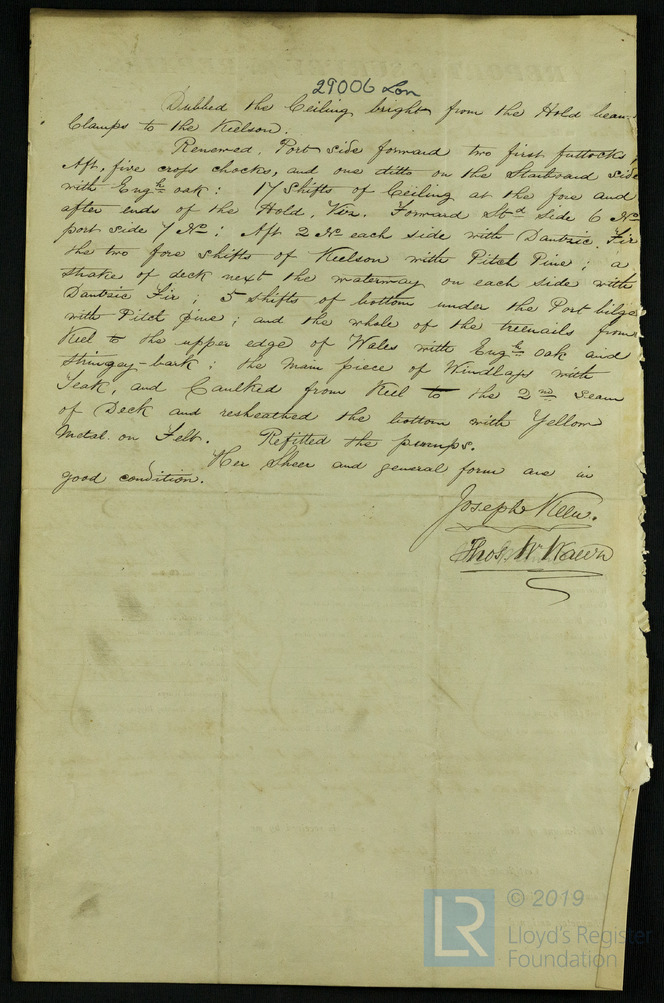 29006 Lon
Dubbed the Ceiling bright from the Hold beam
Clamps to the Keelson.
Renewed. Port side forward two first futtocks,
Aft, five crops chocks, and one ditto on the Starboard side
with Engsh oak: 17 Shifts of Ceiling at the fore and
after ends of the Hold, Viz. Forward Std side 6 No
port side 7 No; Aft 2 No each side with Dantzic Fir
the two fore shifts of Keelson with Pitch Pine; a
strake of deck next the waterway on each side with
Dantzic Fir; 5 shifts of bottom under the Port bilge
with Pitch pine; and the whole of the treenails from
Keel to the upper edge of Wales with Engsh oak and
Stringey-bark; the main piece of Windlass with
Teak, and Caulked from Keel to the 2nd seam
of Deck and resheathed the bottom with Yellow
Metal on Felt. Refitted the pumps.
Her Sheer and general form are in
good condition.
Joseph Keen.
Thos. Wm Wawn
LR
© 2019
Lloyd's Register
Foundation